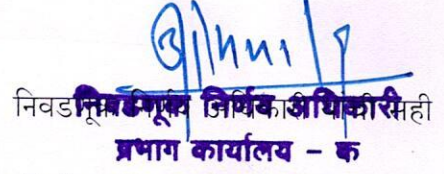 निवडणूक निर्णय अधिकारी यांची सही
निवडणूक निर्णय अधिकारी
प्रभाग कार्यालय - क